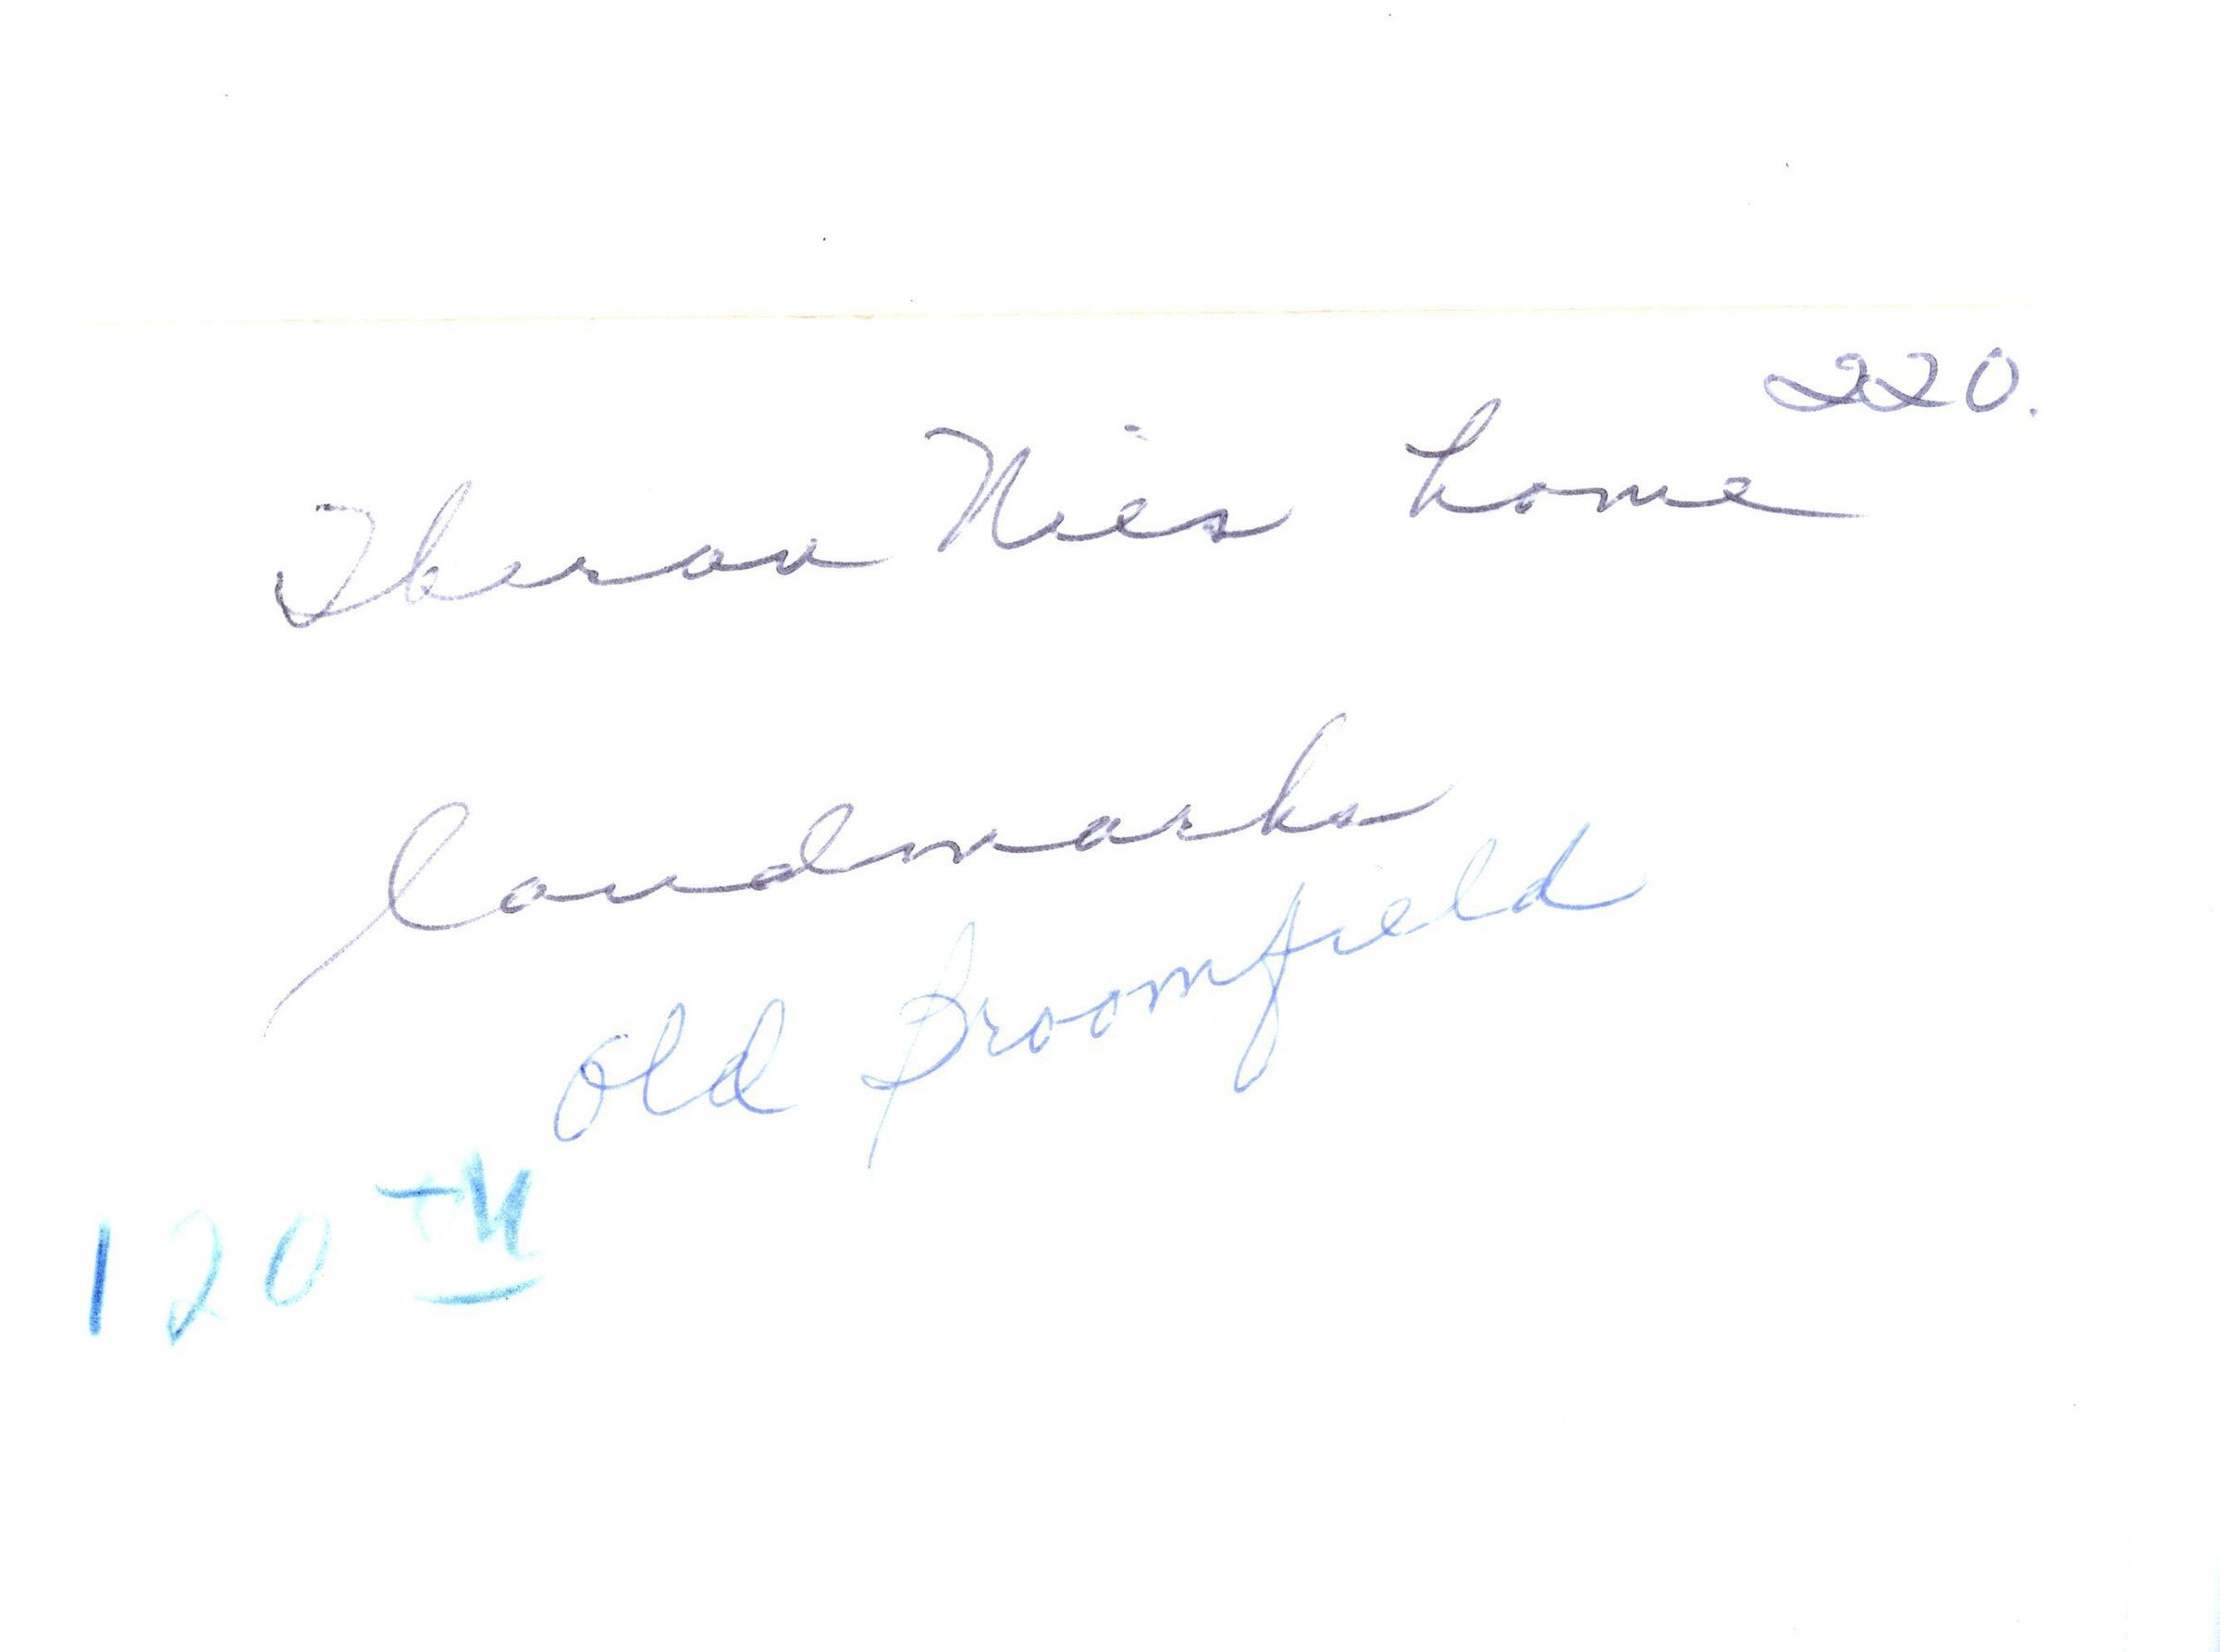 220.
Theron Nies home
landmarks
Old Broomfield
120th